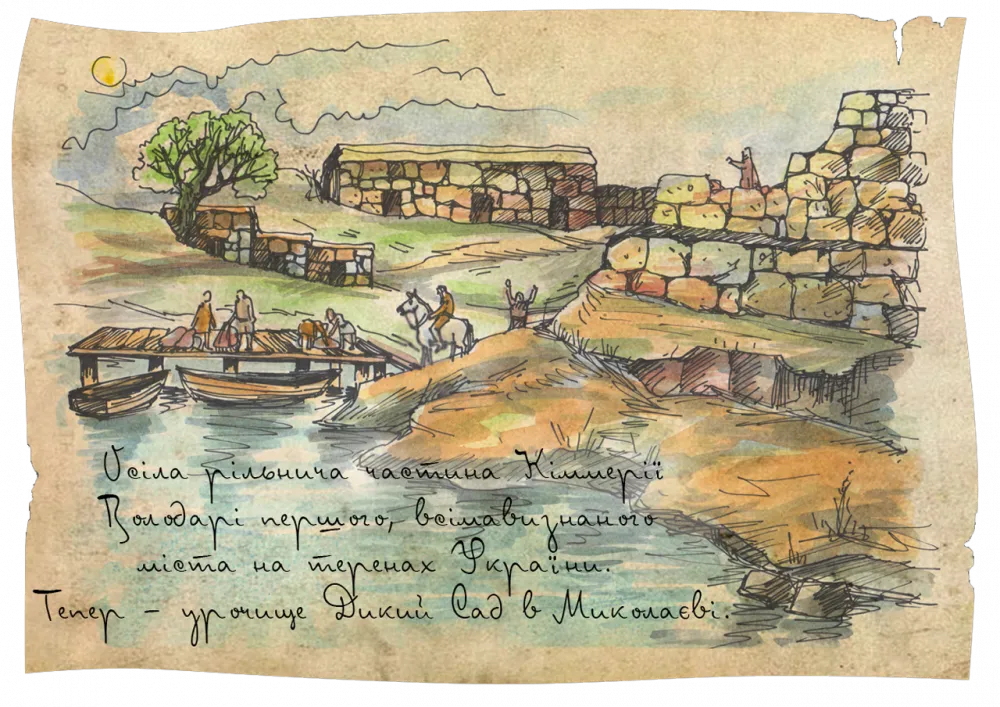 Осіла рільнича частина Кіммерії
Володарі першого, всімавизнаного
міста на теренах України.
Тепер – урочище Дикий Сад в Миколаєві.